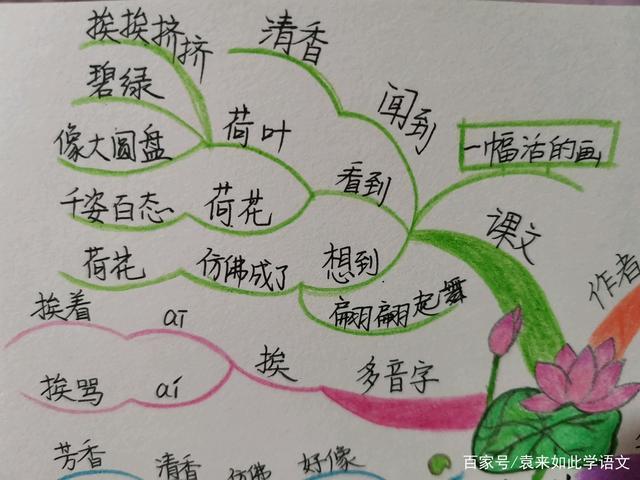 挨挨挤挤
清香
碧绿
闻到
荷叶
像大圆盘
一幅活的画
看到
千姿百态
荷花
课文
荷花
仿佛成了
想到
作者
翩翩起舞
挨着
āi
挨
多音字
挨骂
ái
芳香
清香
仿佛
好像
百家号/袁来如此学语文